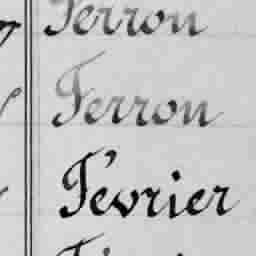 Ferron
Ferron
Février